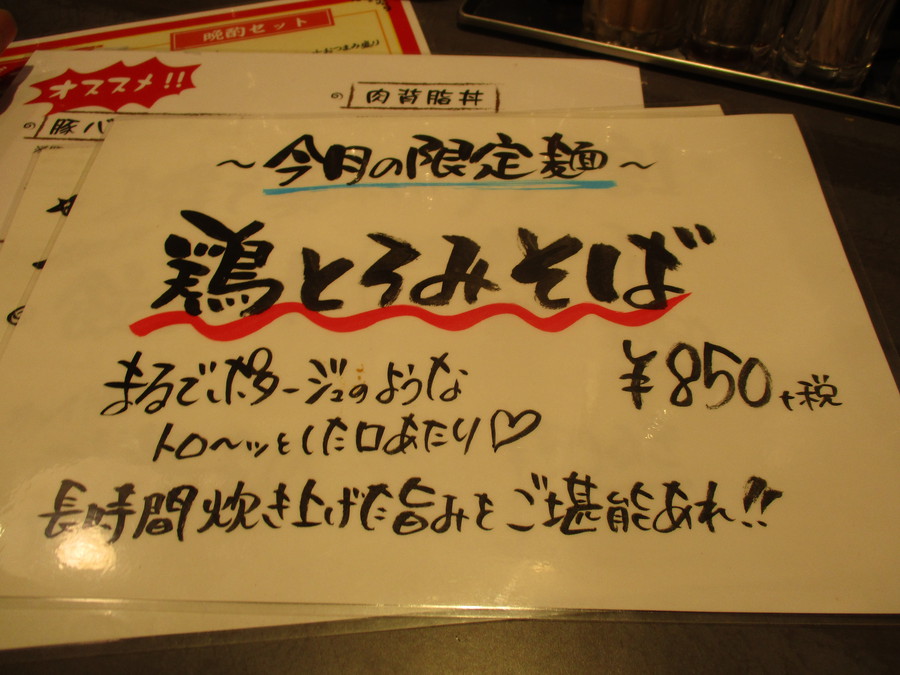 晩酌セット
オススメ!!
の 肉背脂丼
の 豚バ
～今月の限定麺～
鶏とろみそば
まるでポタージュのような
トロ～ッとした口あたり♡
¥850+税
長時間炊き上げた旨みをご堪能あれ!!